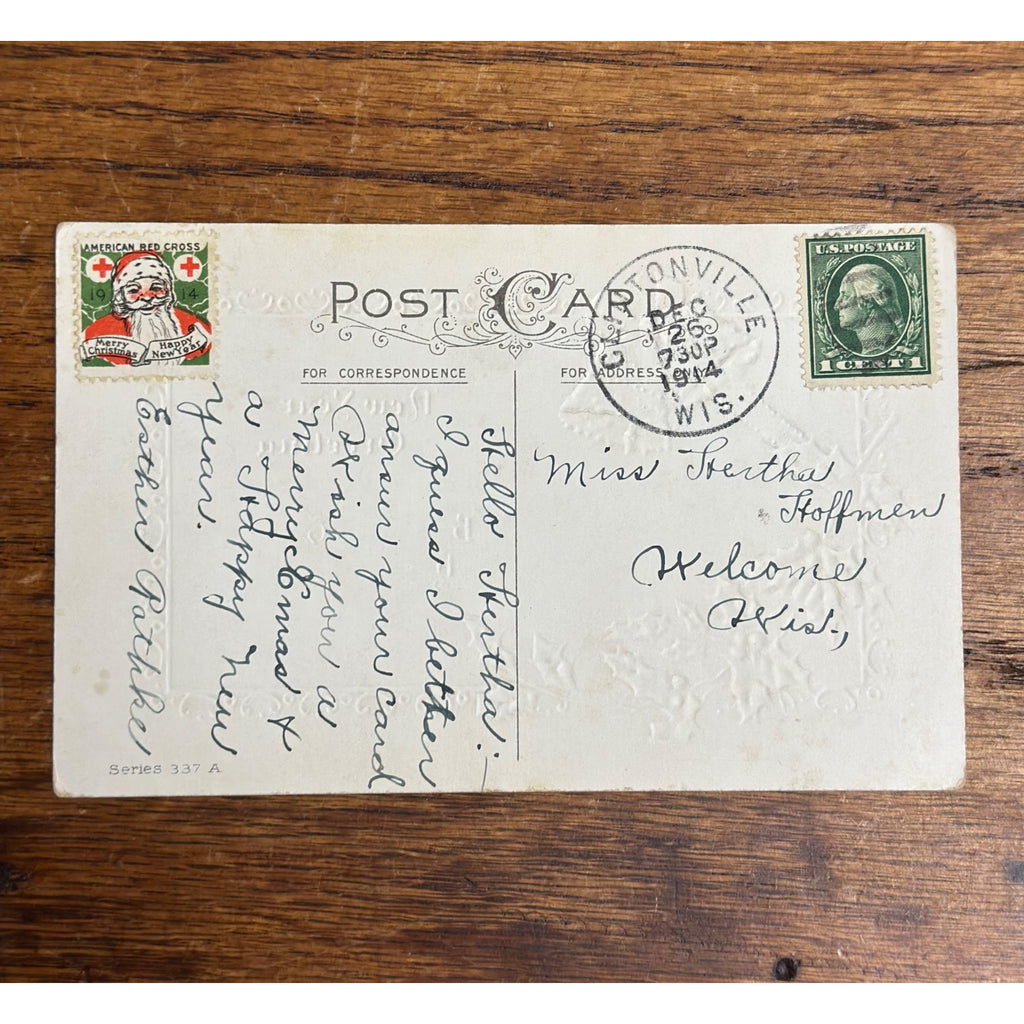 AMERICAN RED CROSS
19 14
Merry Christmas
Happy New Year
POST CARD
CLINTONVILLE
DEC
26
730P
1914
WIS.
U.S. POSTAGE
1 CENT 1
FOR CORRESPONDENCE
FOR ADDRESS ONLY
Hello Hertha:—
I guess I better
ansur your card
Wish you a
Merry Xmas &
a Happy New
Year.
Esther Rathke
Miss Hertha
Hoffmen
Welcome
Wis.,
Series 337 A